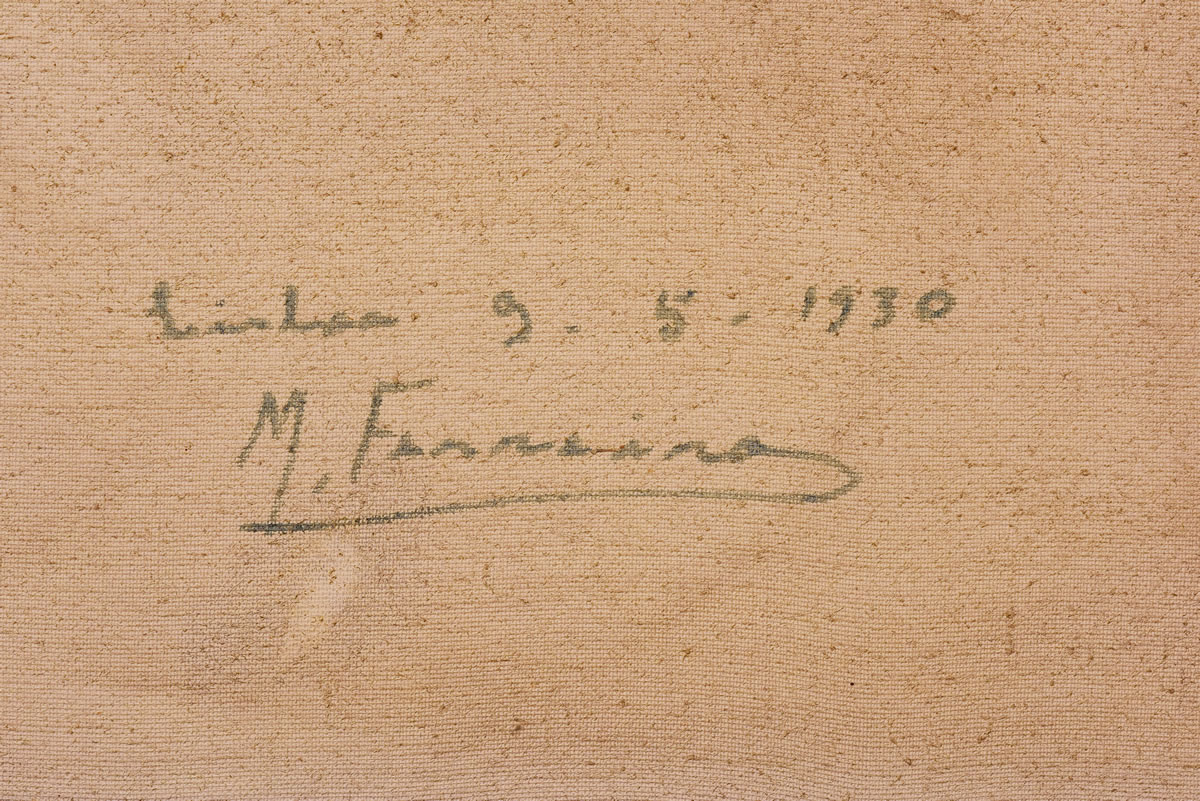 Lisboa 9 - 5 - 1930
M. Ferreira